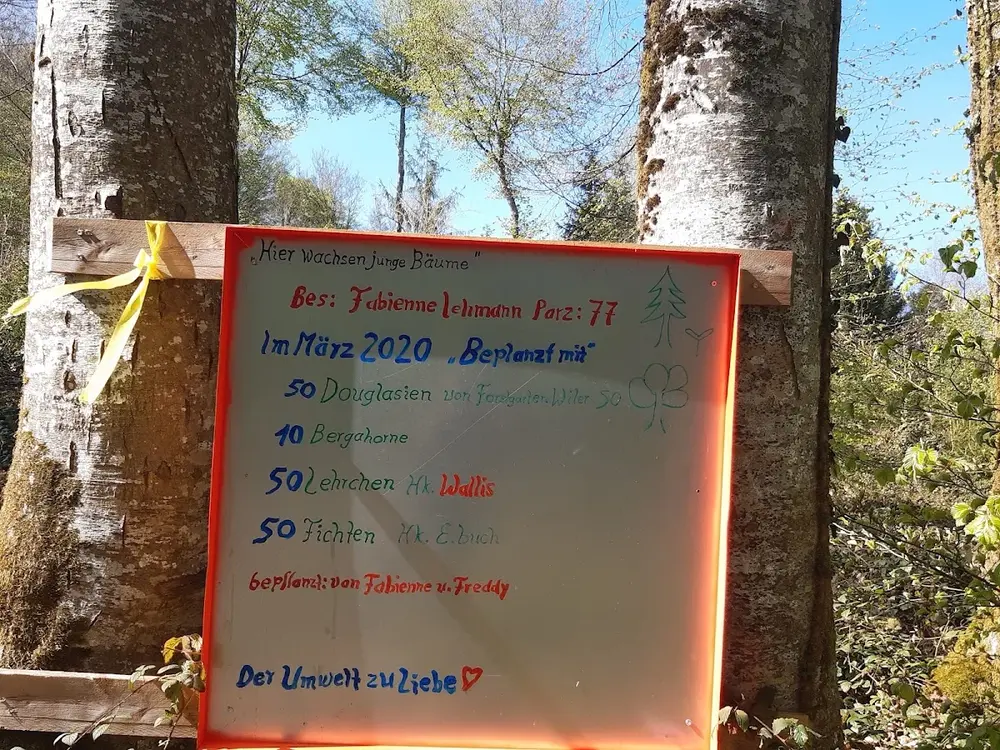 „Hier wachsen junge Bäume"
Bes: Fabienne Lehmann Parz: 77
Im März 2020 „Beplanzt mit"
50 Douglasien von Forstgarten. Wiler 50
10 Bergahorne
50 Lehrchen Hk. Wallis
50 Fichten Hk. E.buch
bepflanzt: von Fabienne u. Freddy
Der Umwelt zu Liebe